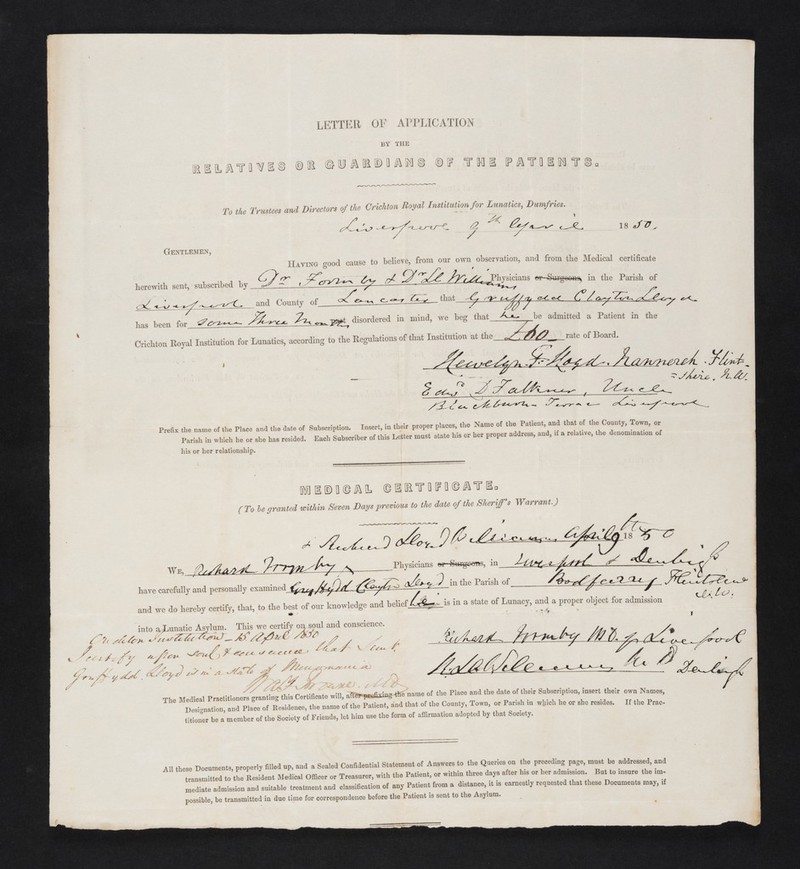 LETTER OF APPLICATION
BY THE
RELATIVES OR GUARDIANS OF THE PATIENTS.
To the Trustees and Directors of the Crichton Royal Institution for Lunatics, Dumfries.
Liverpool 9th April 1850.
GENTLEMEN,
HAVING good cause to believe, from our own observation, and from the Medical certificate
herewith sent, subscribed by Dr Formby & Dr Ll Williams Physicians or Surgeons, in the Parish of
Liverpool and County of Lancaster that Gruffydd Clayton Lloyd
has been for some Three Months past disordered in mind, we beg that he be admitted a Patient in the
Crichton Royal Institution for Lunatics, according to the Regulations of that Institution at the £60 rate of Board.
Llewelyn F. Lloyd. Nannerch Flint-
=shire. N.W.
Edwd D Falkner, Uncle
Blackburn Terrace Liverpool
Prefix the name of the Place and the date of Subscription. Insert, in their proper places, the Name of the Patient, and that of the County, Town, or
Parish in which he or she has resided. Each Subscriber of this Letter must state his or her proper address, and, if a relative, the denomination of
his or her relationship.
MEDICAL CERTIFICATE.
(To be granted within Seven Days previous to the date of the Sheriff's Warrant.)
& Richard Lloyd Williams April 9th 1850
WE, Richard Formby Physicians or Surgeons, in Liverpool & Denbigh
have carefully and personally examined Gruffydd Clayton Lloyd in the Parish of Flintshire
N.W.
and we do hereby certify, that, to the best of our knowledge and belief he is in a state of Lunacy, and a proper object for admission
into a Lunatic Asylum. This we certify on soul and conscience.
Crichton Institution - 15 April 1850
Richard Formby MD. Liverpool
I certify upon soul & conscience that
Gruffydd Lloyd is in a state of Monomania
Williams M D Denbigh
The Medical Practitioners granting this Certificate will, after prefixing the name of the Place and the date of their Subscription, insert their own Names,
Designation, and Place of Residence, the name of the Patient, and that of the County, Town, or Parish in which he or she resides. If the Prac-
titioner be a member of the Society of Friends, let him use the form of affirmation adopted by that Society.
All these Documents, properly filled up, and a Sealed Confidential Statement of Answers to the Queries on the preceding page, must be addressed, and
transmitted to the Resident Medical Officer or Treasurer, with the Patient, or within three days after his or her admission. But to insure the im-
mediate admission and suitable treatment and classification of any Patient from a distance, it is earnestly requested that these Documents may, if
possible, be transmitted in due time for correspondence before the Patient is sent to the Asylum.